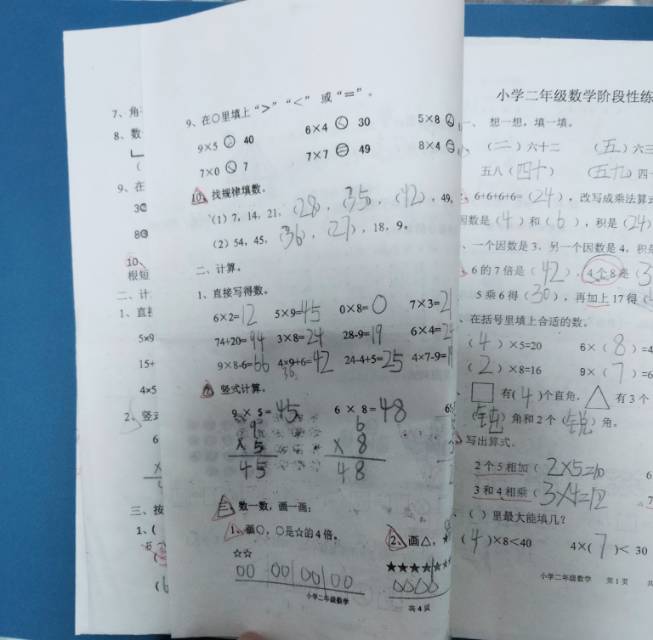 7、角
8、数
9、在
10、
根短
二、计
1、直接
5×9
15+
4×5
2、竖式
三、按
1、(
9、在○里填上“>”“<” 或“=”。
9×5 40
6×4 < 30
5×8
7×0 < 7
7×7 = 49
8×4
10、找规律填数。
(1) 7,14,21,(28),(35),(42),49,
(2) 54,45,(36),(27),18,9。
二、计算。
1、直接写得数。
6×2=12 5×9=45 0×8=0 7×3=21
74+20=94 3×8=24 28-9=19 6×4=2
9×8-6=66 4×9+6=42 24-4+5=25 4×7-9=1
36
竖式计算。
9 × 5 = 45 6 × 8 = 48
9 6
× 5 × 8
45 48
三、数一数,画一画:
1、画○,○是☆的4倍。
2、画△,
☆☆
○○ ○○ ○○ ○○
★★★★★★
○○○○
小学二年级数学 共4页
小学二年级数学阶段性练
一、想一想,填一填。
(二)六十二 (五)六三
五八(四十) (五九)四
6+6+6+6=(24),改写成乘法算式
因数是(4)和(6),积是(24)
一个因数是3,另一个因数是4,积是
6的7倍是(42),4个8是(3
5乘6得(30),再加上17得(
在括号里填上合适的数。
(4)×5=20 6×(8)=4
(2)×8=16 9×(7)=6
□有(4)个直角,△有3个
(钝)角和2个(锐)角。
写出算式。
2个5相加(2×5=10
3和4相乘(3×4=12
( )里最大能填几?
(4)×8<40 4×(7)< 30
小学二年级数学 第1页 共